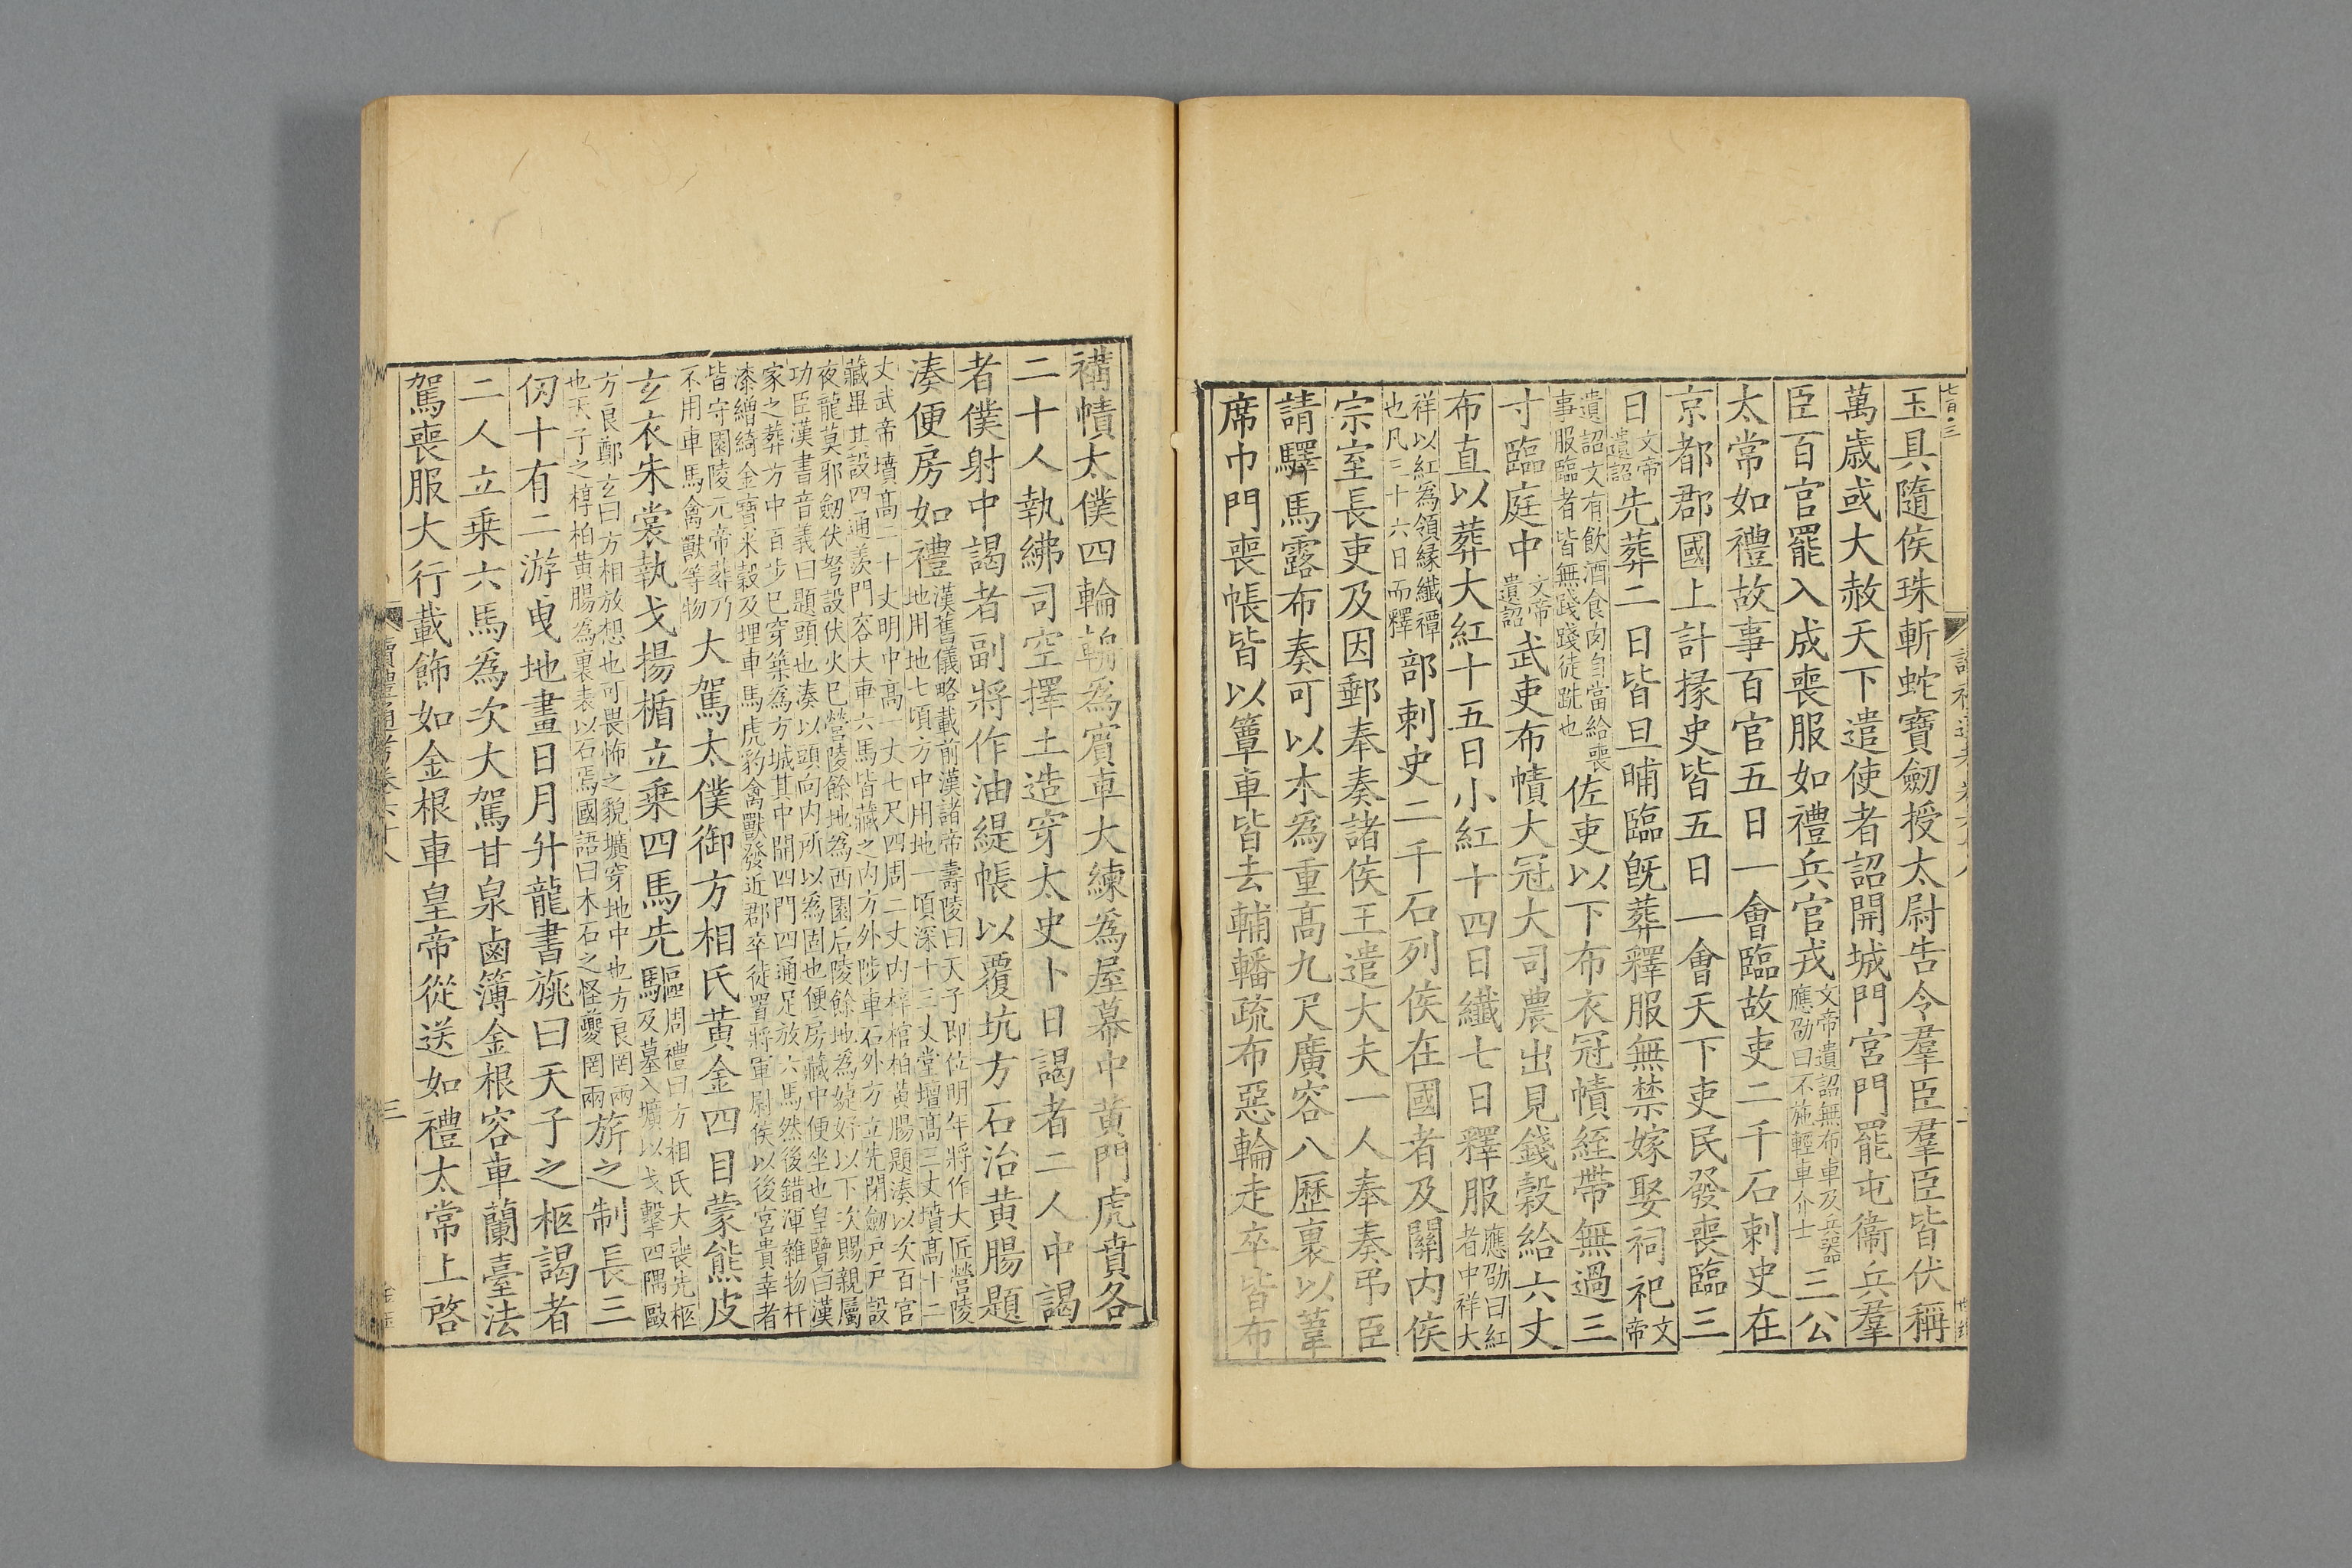 玉具隨侯珠斬蛇寶劒授太尉告令羣臣羣臣皆伏稱
萬歲或大赦天下遣使者詔開城門宮門罷屯衞兵羣
臣百官罷入成喪服如禮兵官戎文帝遺詔無布車及兵器應劭曰不施輕車介士三公
太常如禮故事百官五日一會臨故吏二千石刺史在
京都郡國上計掾史皆五日一會天下吏民發喪臨三
日文帝遺詔先葬二日皆旦晡臨旣葬釋服無禁嫁娶祠祀文帝
遺詔文有飲酒食肉自當給喪事服臨者皆無踐踐徒跣也佐吏以下布衣冠幘絰帶無過三
寸臨庭中文帝遺詔武吏布幘大冠大司農出見錢穀給六丈
布直以葬大紅十五日小紅十四日纖七日釋服應劭曰紅者中祥大
祥以紅爲領緣纖禫也凡三十六日而釋部刺史二千石列侯在國者及關內侯
宗室長吏及因郵奉奏諸侯王遣大夫一人奉奏弔臣
請驛馬露布奏可以木爲重高九尺廣容八歷裏以葦
席巾門喪帳皆以簟車皆去輔轓疏布惡輪走卒皆布
褠幘太僕四輪輈爲賓車大練爲屋幕中黃門虎賁各
二十人執紼司空擇土造穿太史卜日謁者二人中謁
者僕射中謁者副將作油緹帳以覆坑方石治黃腸題
湊便房如禮漢舊儀略載前漢諸帝壽陵曰天子即位明年將作大匠營陵地用地七頃方中用地一頃深十三丈堂壇高三丈墳高十二
丈武帝墳高二十丈明中高一丈七尺四周二丈內梓棺柏黃腸題湊以次百官藏畢其設四通羨門容大車六馬皆藏之內方外陟車石外方立先閉劒戶戶設
夜龍莫邪劒伏弩設伏火已營陵餘地爲西園后陵餘地爲婕妤以下次賜親屬功臣漢書音義曰題頭也湊以頭向內所以爲固也便房藏中便坐也皇覽曰漢
家之葬方中百步已穿築爲方城其中開四門四通足放六馬然後錯渾雜物杅漆繒綺金寶米穀及埋車馬虎豹禽獸發近郡卒徒置將軍尉侯以後宮貴幸者
皆守園陵元帝葬乃不用車馬禽獸等物大駕太僕御方相氏黃金四目蒙熊皮
玄衣朱裳執戈揚楯立乘四馬先驅周禮曰方相氏大喪先柩及墓入壙以戈擊四隅毆
方良鄭玄曰方相放想也可畏怖之貌壙穿地中也方良罔兩也天子之椁柏黃腸爲裏表以石焉國語曰木石之怪夔罔兩旂之制長三
仞十有二游曳地畫日月升龍書旐曰天子之柩謁者
二人立乘六馬爲次大駕甘泉鹵簿金根容車蘭臺法
駕喪服大行載飾如金根車皇帝從送如禮太常上啓
讀禮通考卷六十八
三